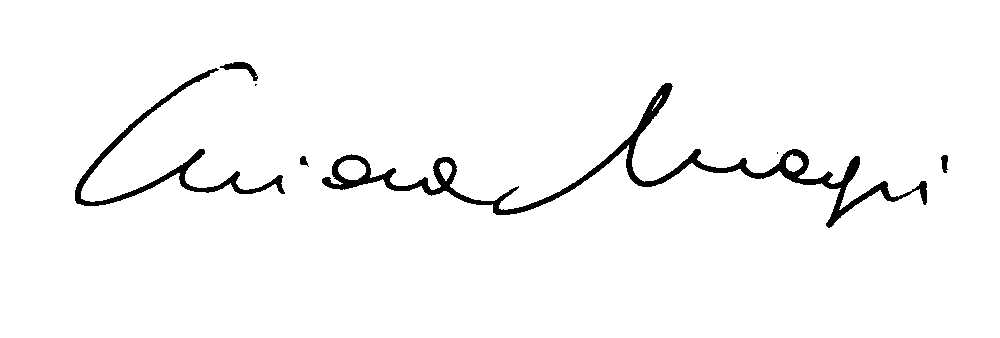 Chiara Magri